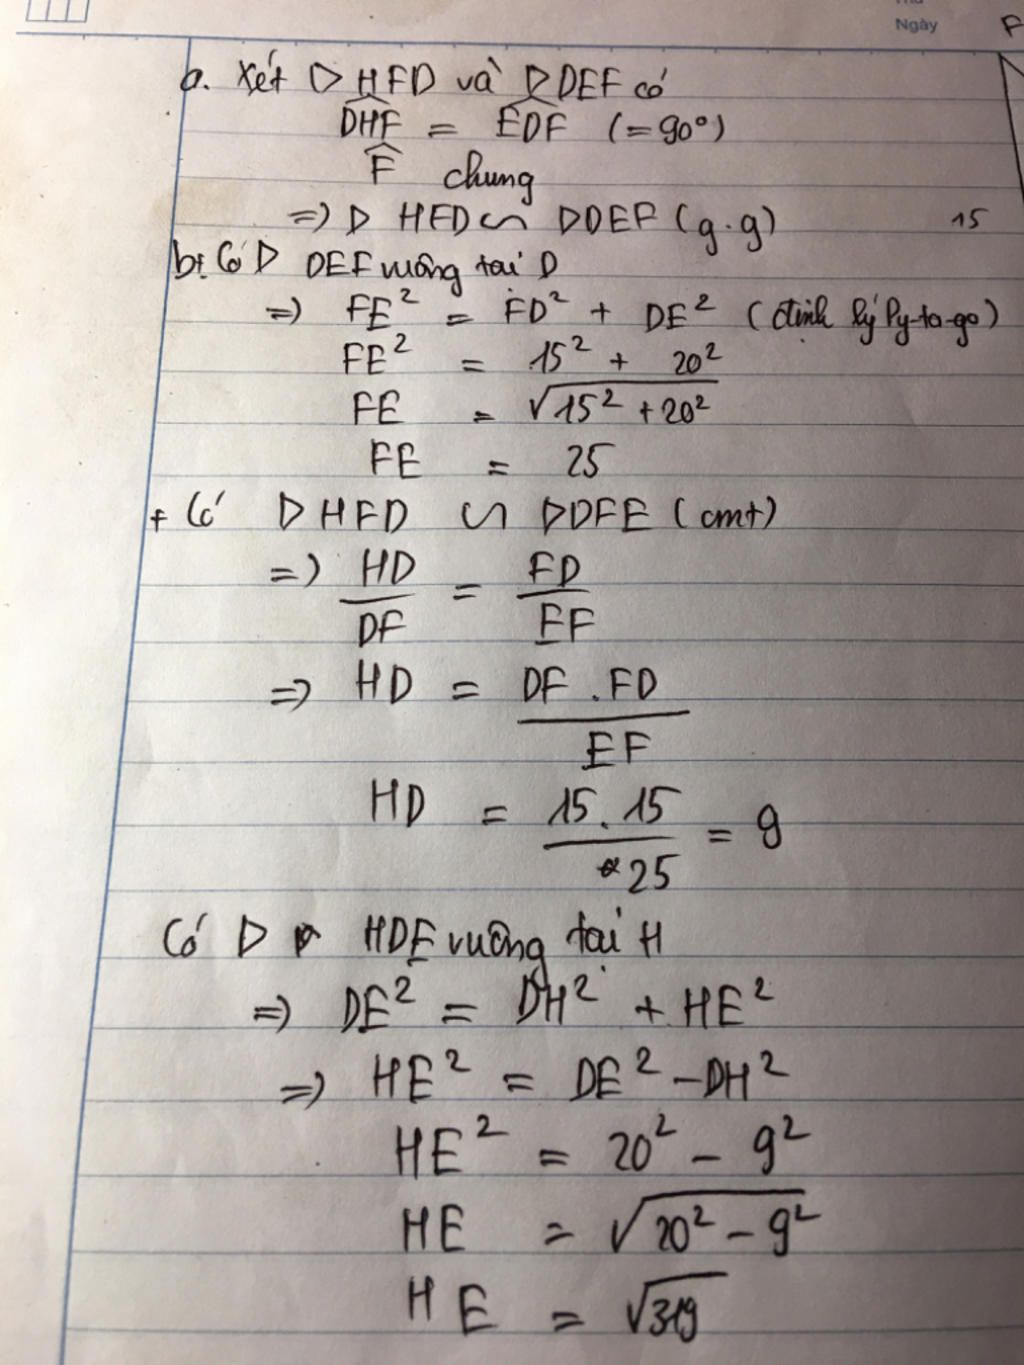 Ngày
F
a. Xét △ HFD và △ DEF có
DHF = EDF (= 90°)
F chung
=> △ HFD ∽ △DEF (g.g)
15
b. Có △ DEF vuông tại D
=> FE² = FD² + DE² (định lý Py-ta-go)
FE² = 15² + 20²
FE = √15² + 20²
FE = 25
+ Có △ HFD ∽ △DFE (cmt)
=> HD/DF = FD/EF
=> HD = DF . FD/EF
HD = 15 . 15/25 = 9
Có △ HDE vuông tại H
=> DE² = DH² + HE²
=> HE² = DE² - DH²
HE² = 20² - 9²
HE = √20² - 9²
HE = √319